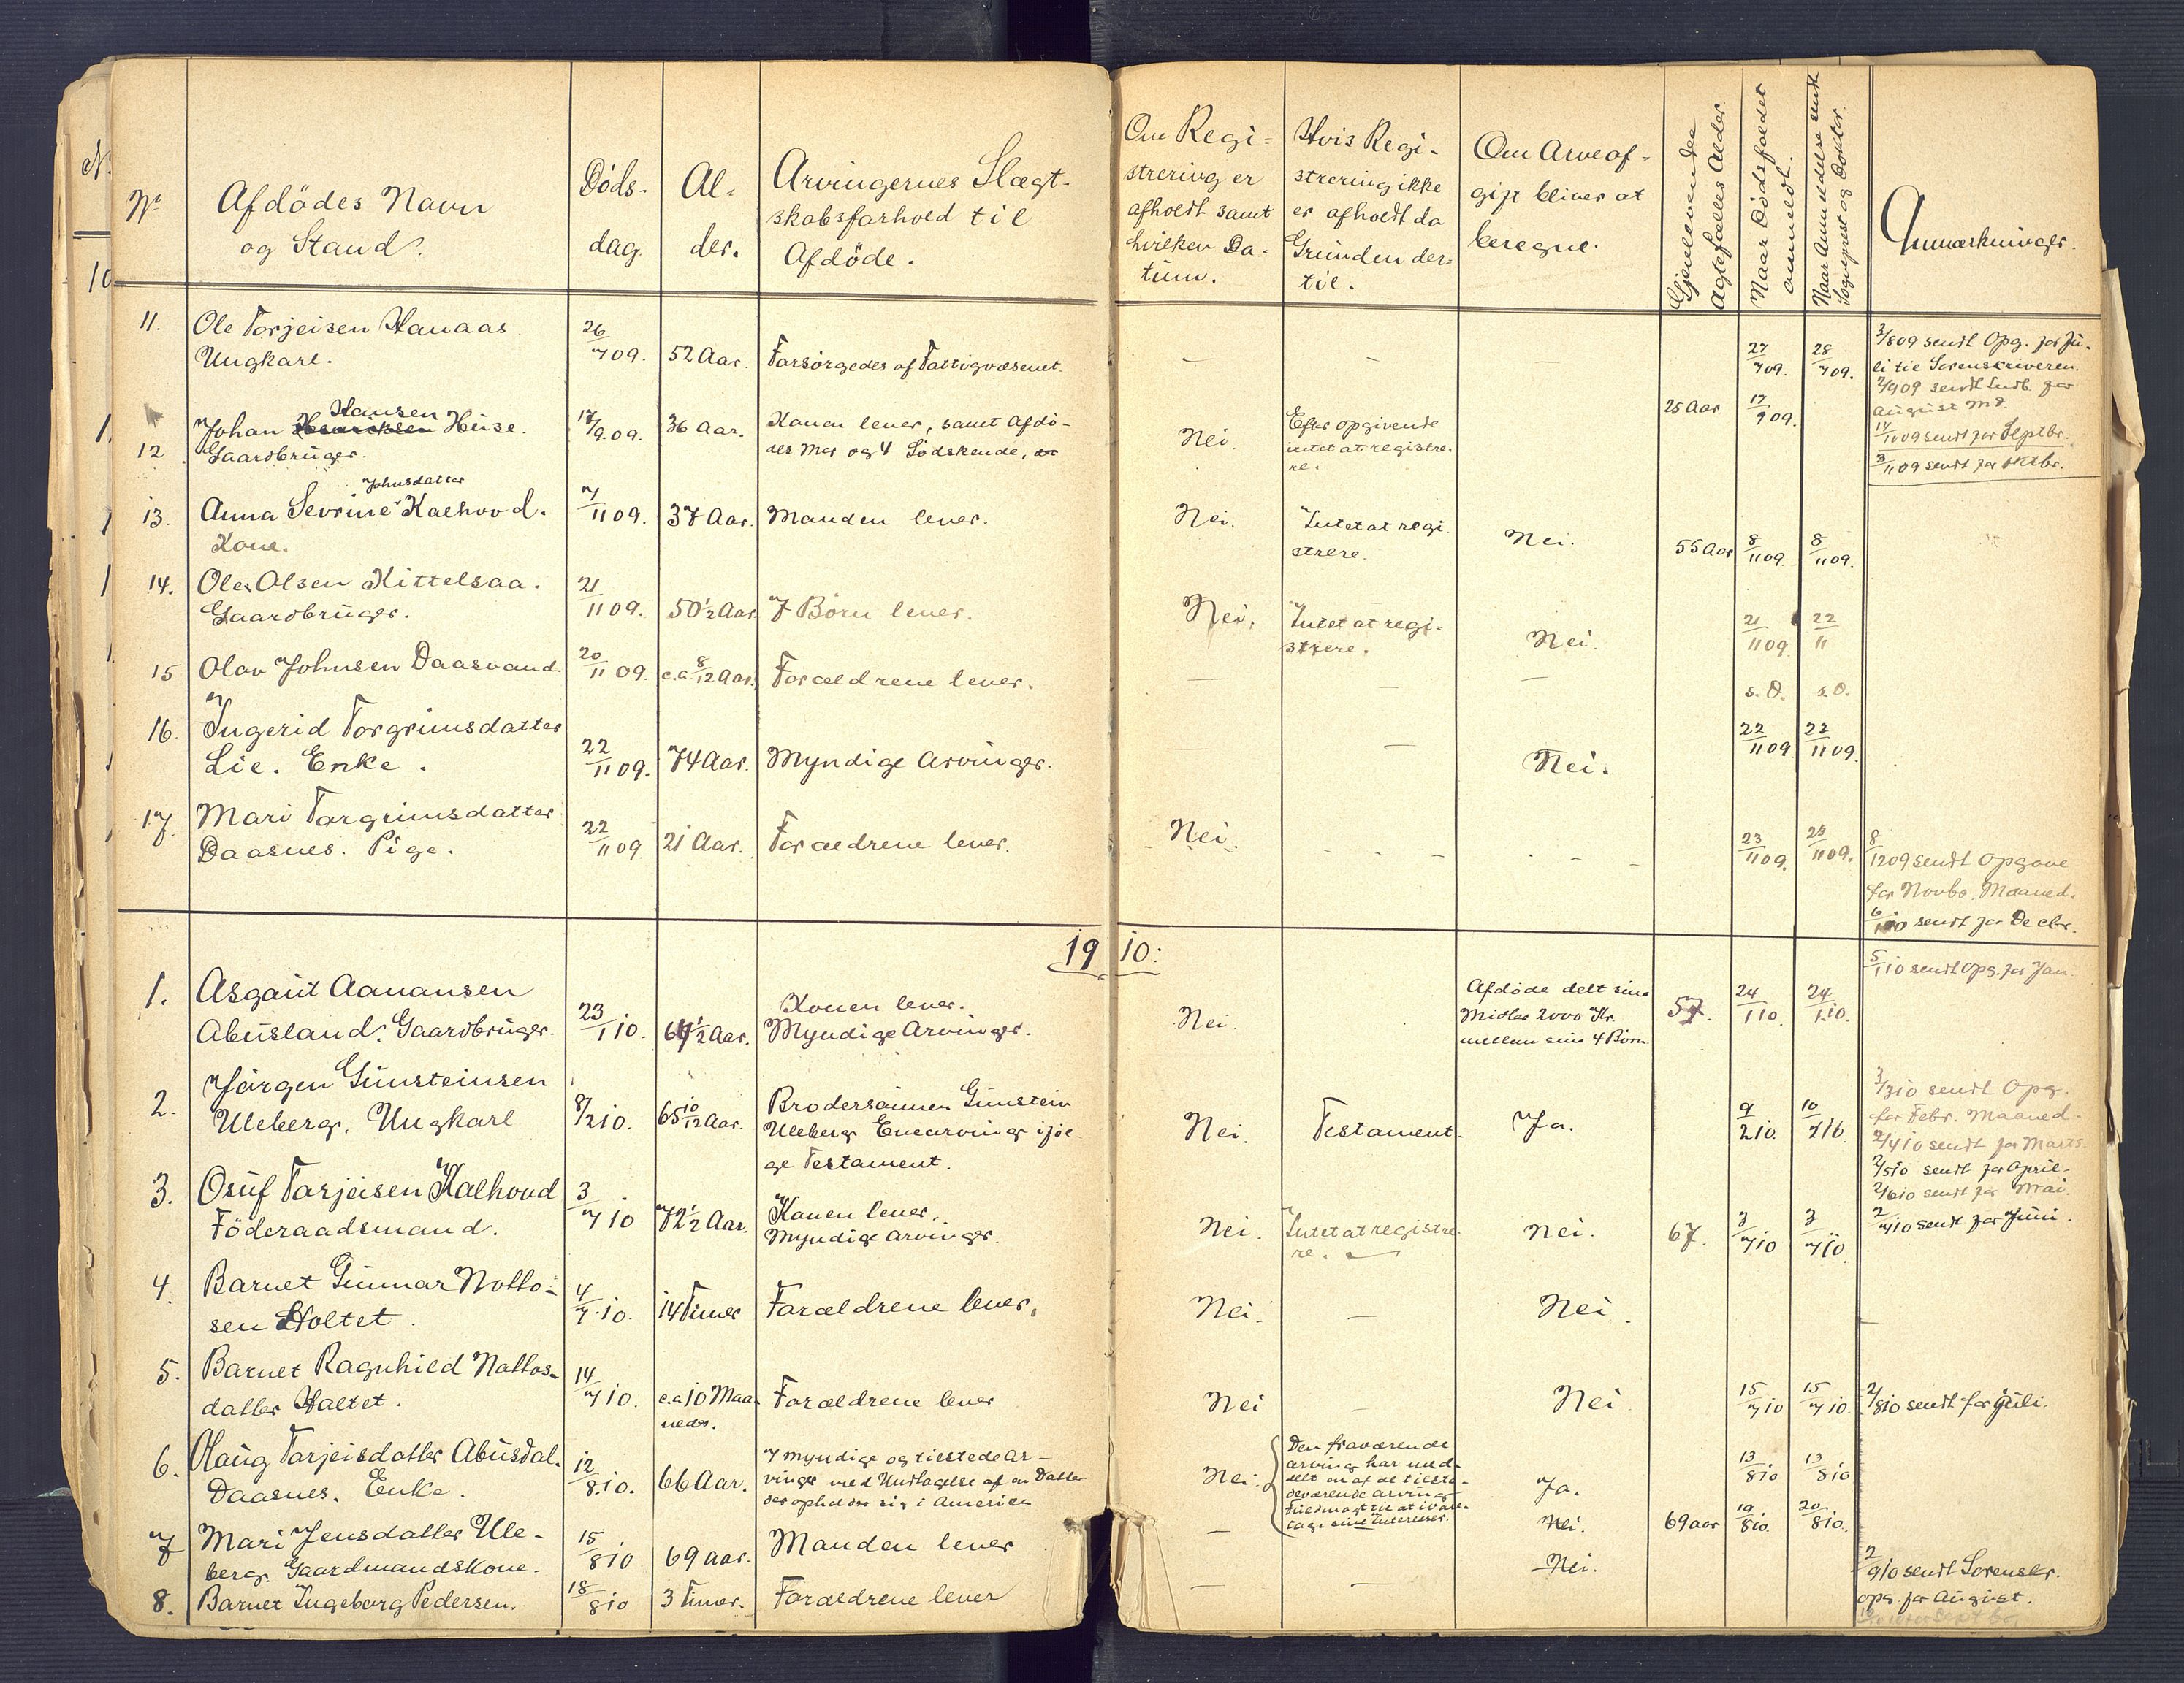 Nr.
Afdödes Navn
og Stand.
Döds-
dag.
Al-
der.
Arvingernes Slægt-
skabsforhold til
Afdöde.
Om Regi-
strering er
afholdt samt
hvilken Da-
tum.
Hvis Regi-
strering ikke
er afholdt da
Grunden der-
til.
Om Arveaf-
gift bliver at
beregne.
Gjenlevende
Ægtefælles Alder.
Naar Dödsfaldet
anmeldt.
Naar Anmeldelse sendt
Sogneprest og Doktor.
Anmærkninger.
11.
Ole Torjeisen Hanaas
Ungkarl.
26/7 09.
52 Aar.
Forsörgedes af Fattigvæsenet.
— — —
27/7 09.
28/7 09.
3/8 09 sendt Opg. for Ju-
li til Sorenskriveren.
2/9 09 sendt Indb. for
August Md.
14/10 09 sendt for Septbr.
3/11 09 sendt for Oktbr.
12
Johan Hansen Heise.
Gaardbruger.
17/9.09.
36 Aar.
Konen lever, samt Afdö-
des Mor og 4 Södskende,
Nei.
Efter opgivende
intet at registre-
re.
25 Aar.
17/9 09.
13.
Anna Sevrine Johnsdatter Kalhovd.
Kone.
7/11 09.
37 Aar.
Manden lever.
Nei.
Intet at regi
strere.
Nei.
55 Aar
8/11 09.
8/11 09.
14.
Ole Olsen Kittelsaa.
Gaardbruger.
21/11 09.
50 1/2 Aar.
7 Börn lever.
Nei.
Intet at regi-
strere.
Nei.
21/11 09.
22/11
15
Olav Johnsen Daasvand.
20/11 09.
c.a 8/12 Aar.
Forældrene lever.
— — —
s. D.
s. D.
16.
Ingerid Torgrimsdatter
Lie. Enke.
22/11 09.
74 Aar.
Myndige Arvinger.
— —
Nei.
22/11 09.
22/11 09.
17.
Mari Torgrimsdatter
Daasnes. Pige.
22/11 09.
21 Aar.
Forældrene lever.
Nei.
23/11 09.
23/11 09.
8/12 09 sendt Opgave
for Novbr. Maaned.
6/1 10 sendt for Decbr.
1910:
5/1 10 sendt Opg. for Jan.
1.
Asgaut Aanansen
Abusland. Gaardbruger.
23/1 10.
64 1/2 Aar.
Konen lever.
Myndige Arvinger.
Nei.
Afdöde delt sine
Midler 2000 Kr.
mellem sine 4 Börn
57.
24/1 10.
24/1.10.
2.
Jörgen Gunsteinsen
Uleberg. Ungkarl
8/2 10.
65 10/12 Aar.
Brodersönnen Gunstein
Uleberg Enearving iföl-
ge Testament.
Nei.
Testament.
Ja.
9/2 10.
10/2 10.
3/3 10 sendt Opg.
for Febr. Maaned.
2/4 10 sendt for Marts.
2/5 10 sendt for April.
2/6 10 sendt for Mai.
2/7 10 sendt for Juni.
3.
Osuf Tarjeisen Kalhovd
Föderaadsmand.
3/7 10
72 1/2 Aar.
Konen lever,
Myndige Arvinger.
Nei.
Intet at registre
re.
Nei.
67.
3/7 10
3/7 10.
4.
Barnet Gunnar Notto-
sen Holtet.
4/7.10.
14 Timer
Forældrene lever,
Nei.
—
Nei.
5.
Barnet Ragnhild Nottos-
datter Holtet.
14/7 10.
c.a 10 Maa-
neder.
Forældrene lever
Nei
—
Nei.
15/7 10
15/7 10.
2/8 10 sendt for Juli.
6.
Olaug Tarjeisdatter Abusdal.
Daasnes. Enke.
12/8.10.
66 Aar.
7 myndige og tilstede Ar-
vinger med Undtagelse af en Datter
der opholder sig i America
Nei.
Den fraværende
arving har med-
delt en af de tilste-
deværende arvinger
Fuldmagt til at ivare-
tage sine Interesser.
Ja.
13/8 10
13/8 10
7
Mari Jensdatter Ule-
berg. Gaardmandskone.
15/8 10
69 Aar.
Manden lever
—
Nei.
69 aar
19/8 10.
20/8 10.
8.
Barnet Ingeborg Pedersen.
18/8 10
3 Timer.
Forældrene lever
— —
Nei.
2/9 10 sendt Sorenskr.
opg. for August.